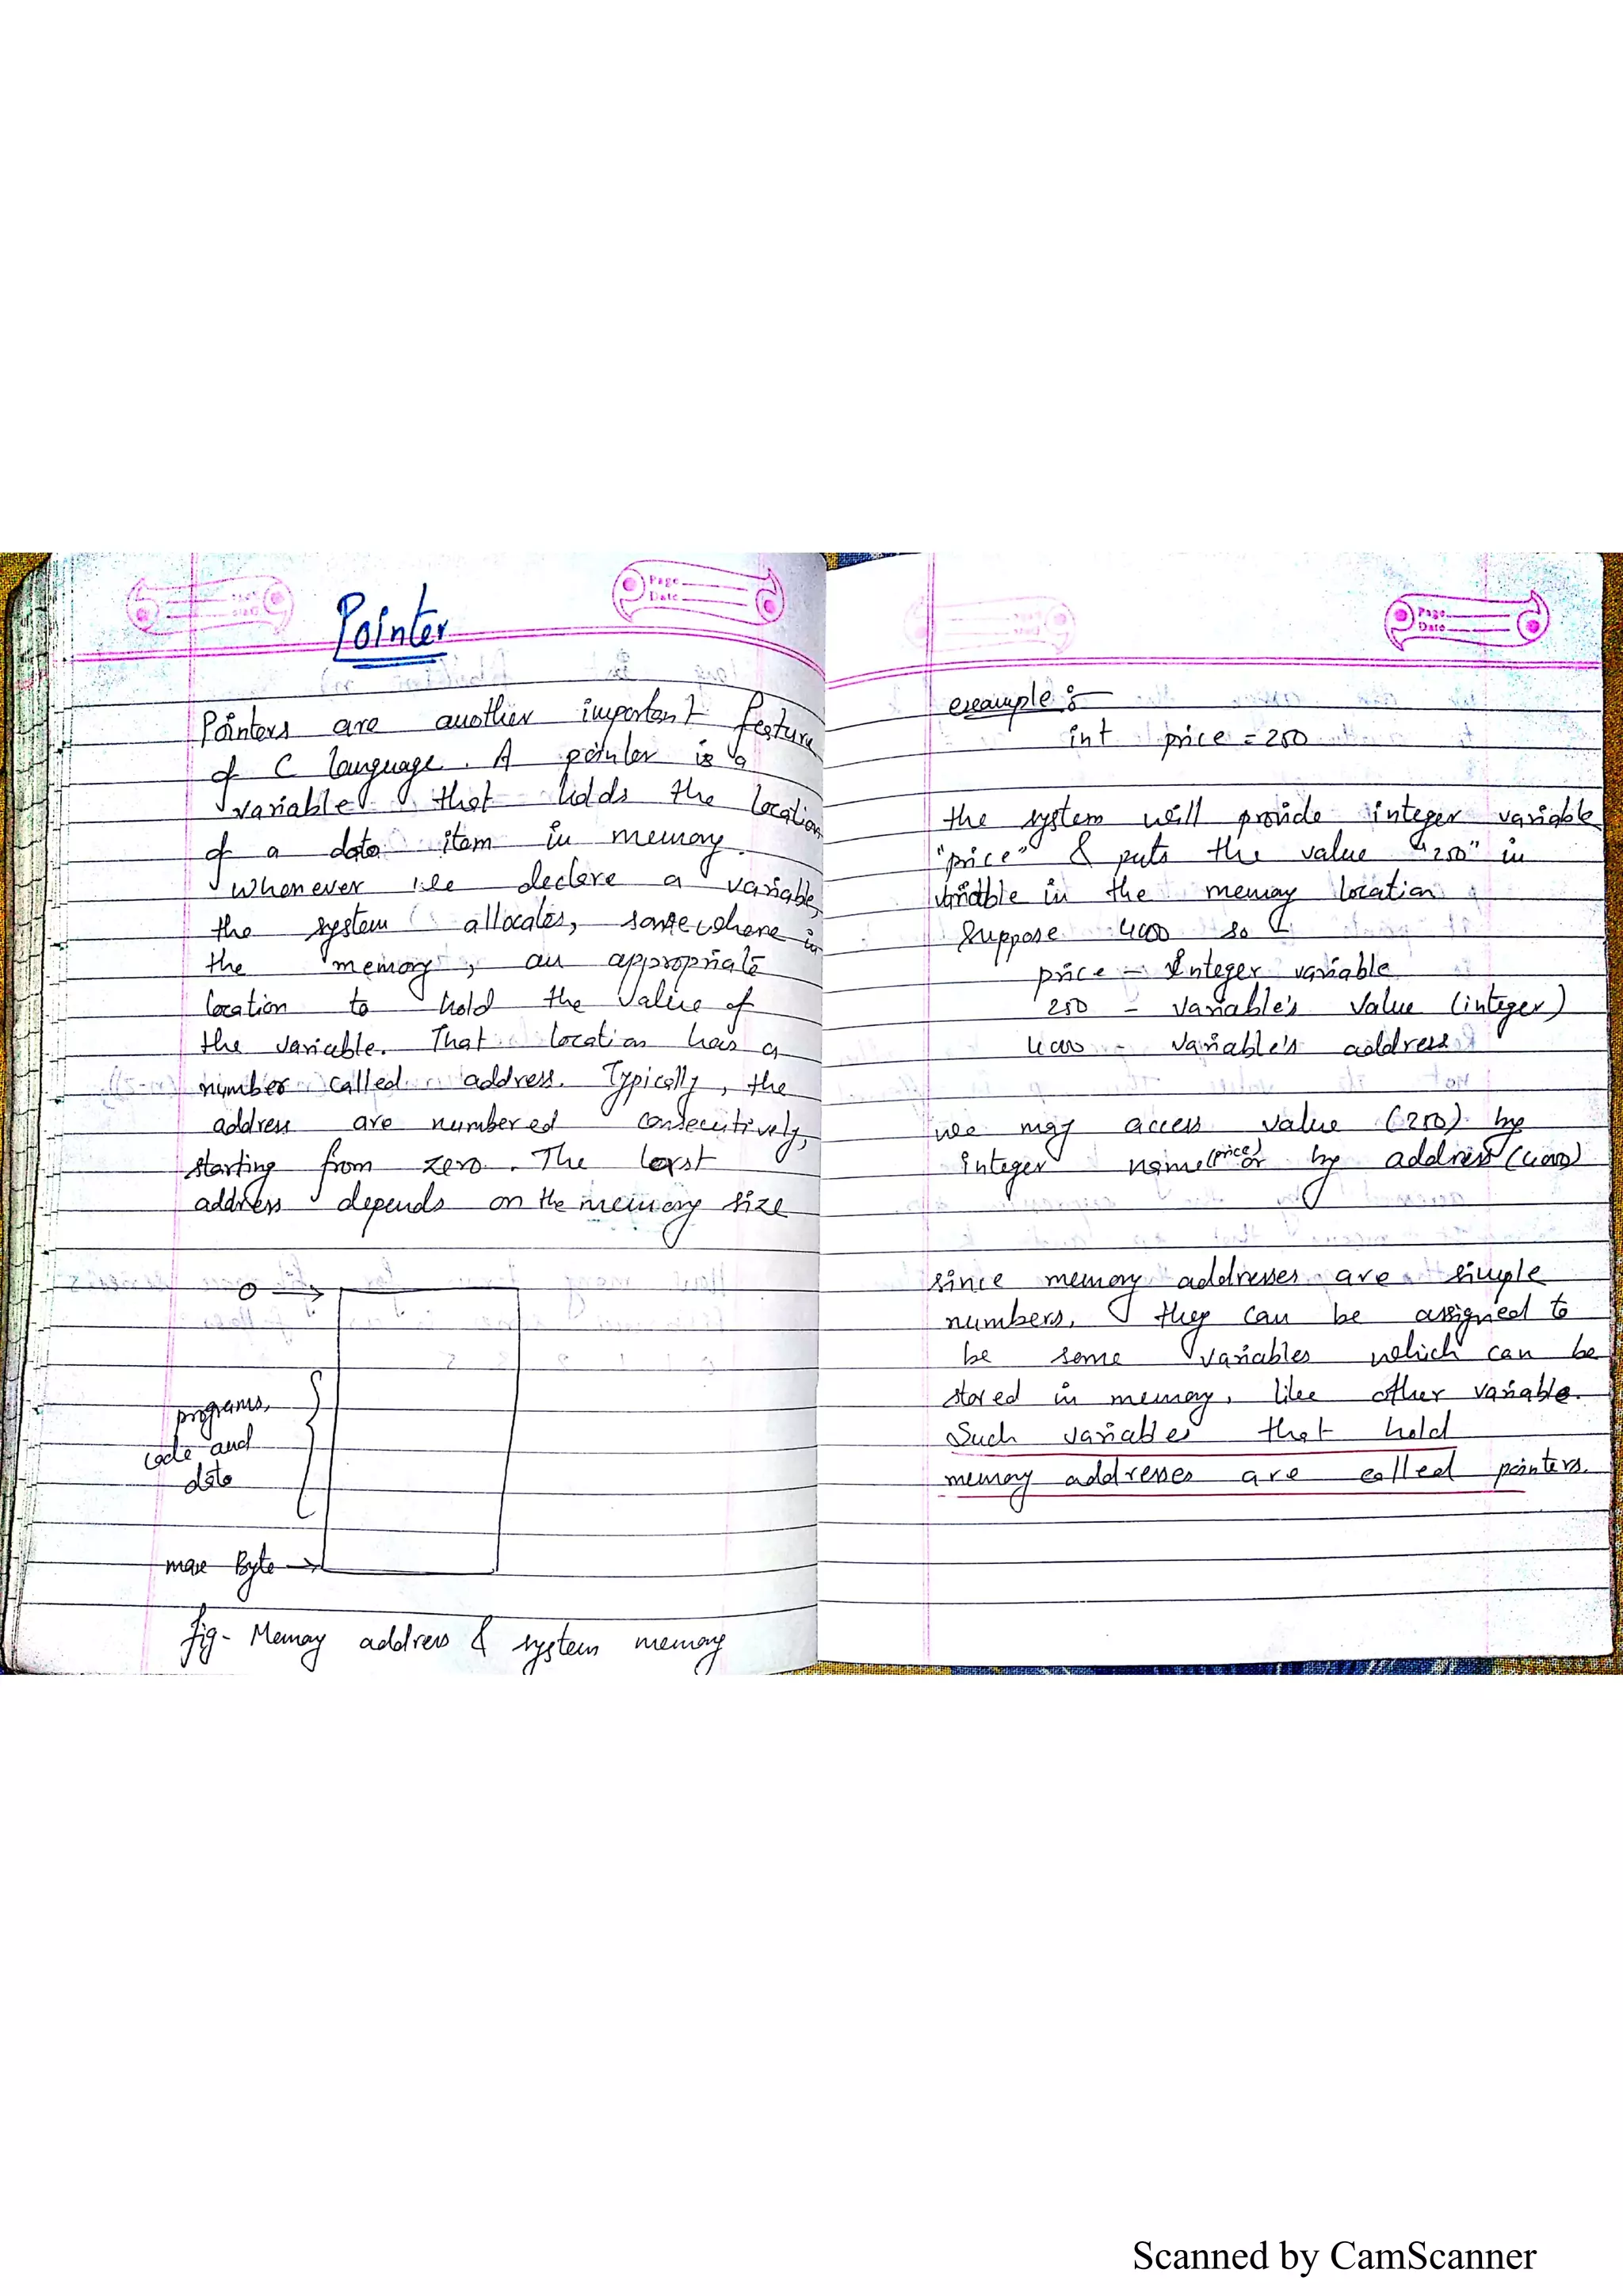 Page
Date
Pointer
Pointers are another important feature
of C language. A pointer is a
variable that holds the location
of a data item in memory.
Whenever we declare a variable,
the system allocates, somewhere in
the memory, an appropriate
location to hold the value of
the variable. That location has a
number called address. Typically, the
address are numbered consecutively,
starting from zero. The last
address depends on the memory size
0 →
programs,
code and
data
max Byte →
fig- Memory address & system memory
Page
Date
example :-
int price = 250
the system will provide integer variable
"price" & puts the value "250" in
variable in the memory location
Suppose 4000 so
price - Integer variable
250 - variable's value (integer)
4000 - variable's address
we may access value (250) by
integer name (price) or by address (4000)
since memory addresses are simple
numbers, they can be assigned to
be some variables which can be
stored in memory, like other variable.
Such variables that hold
memory addresses are called pointers.
Scanned by CamScanner